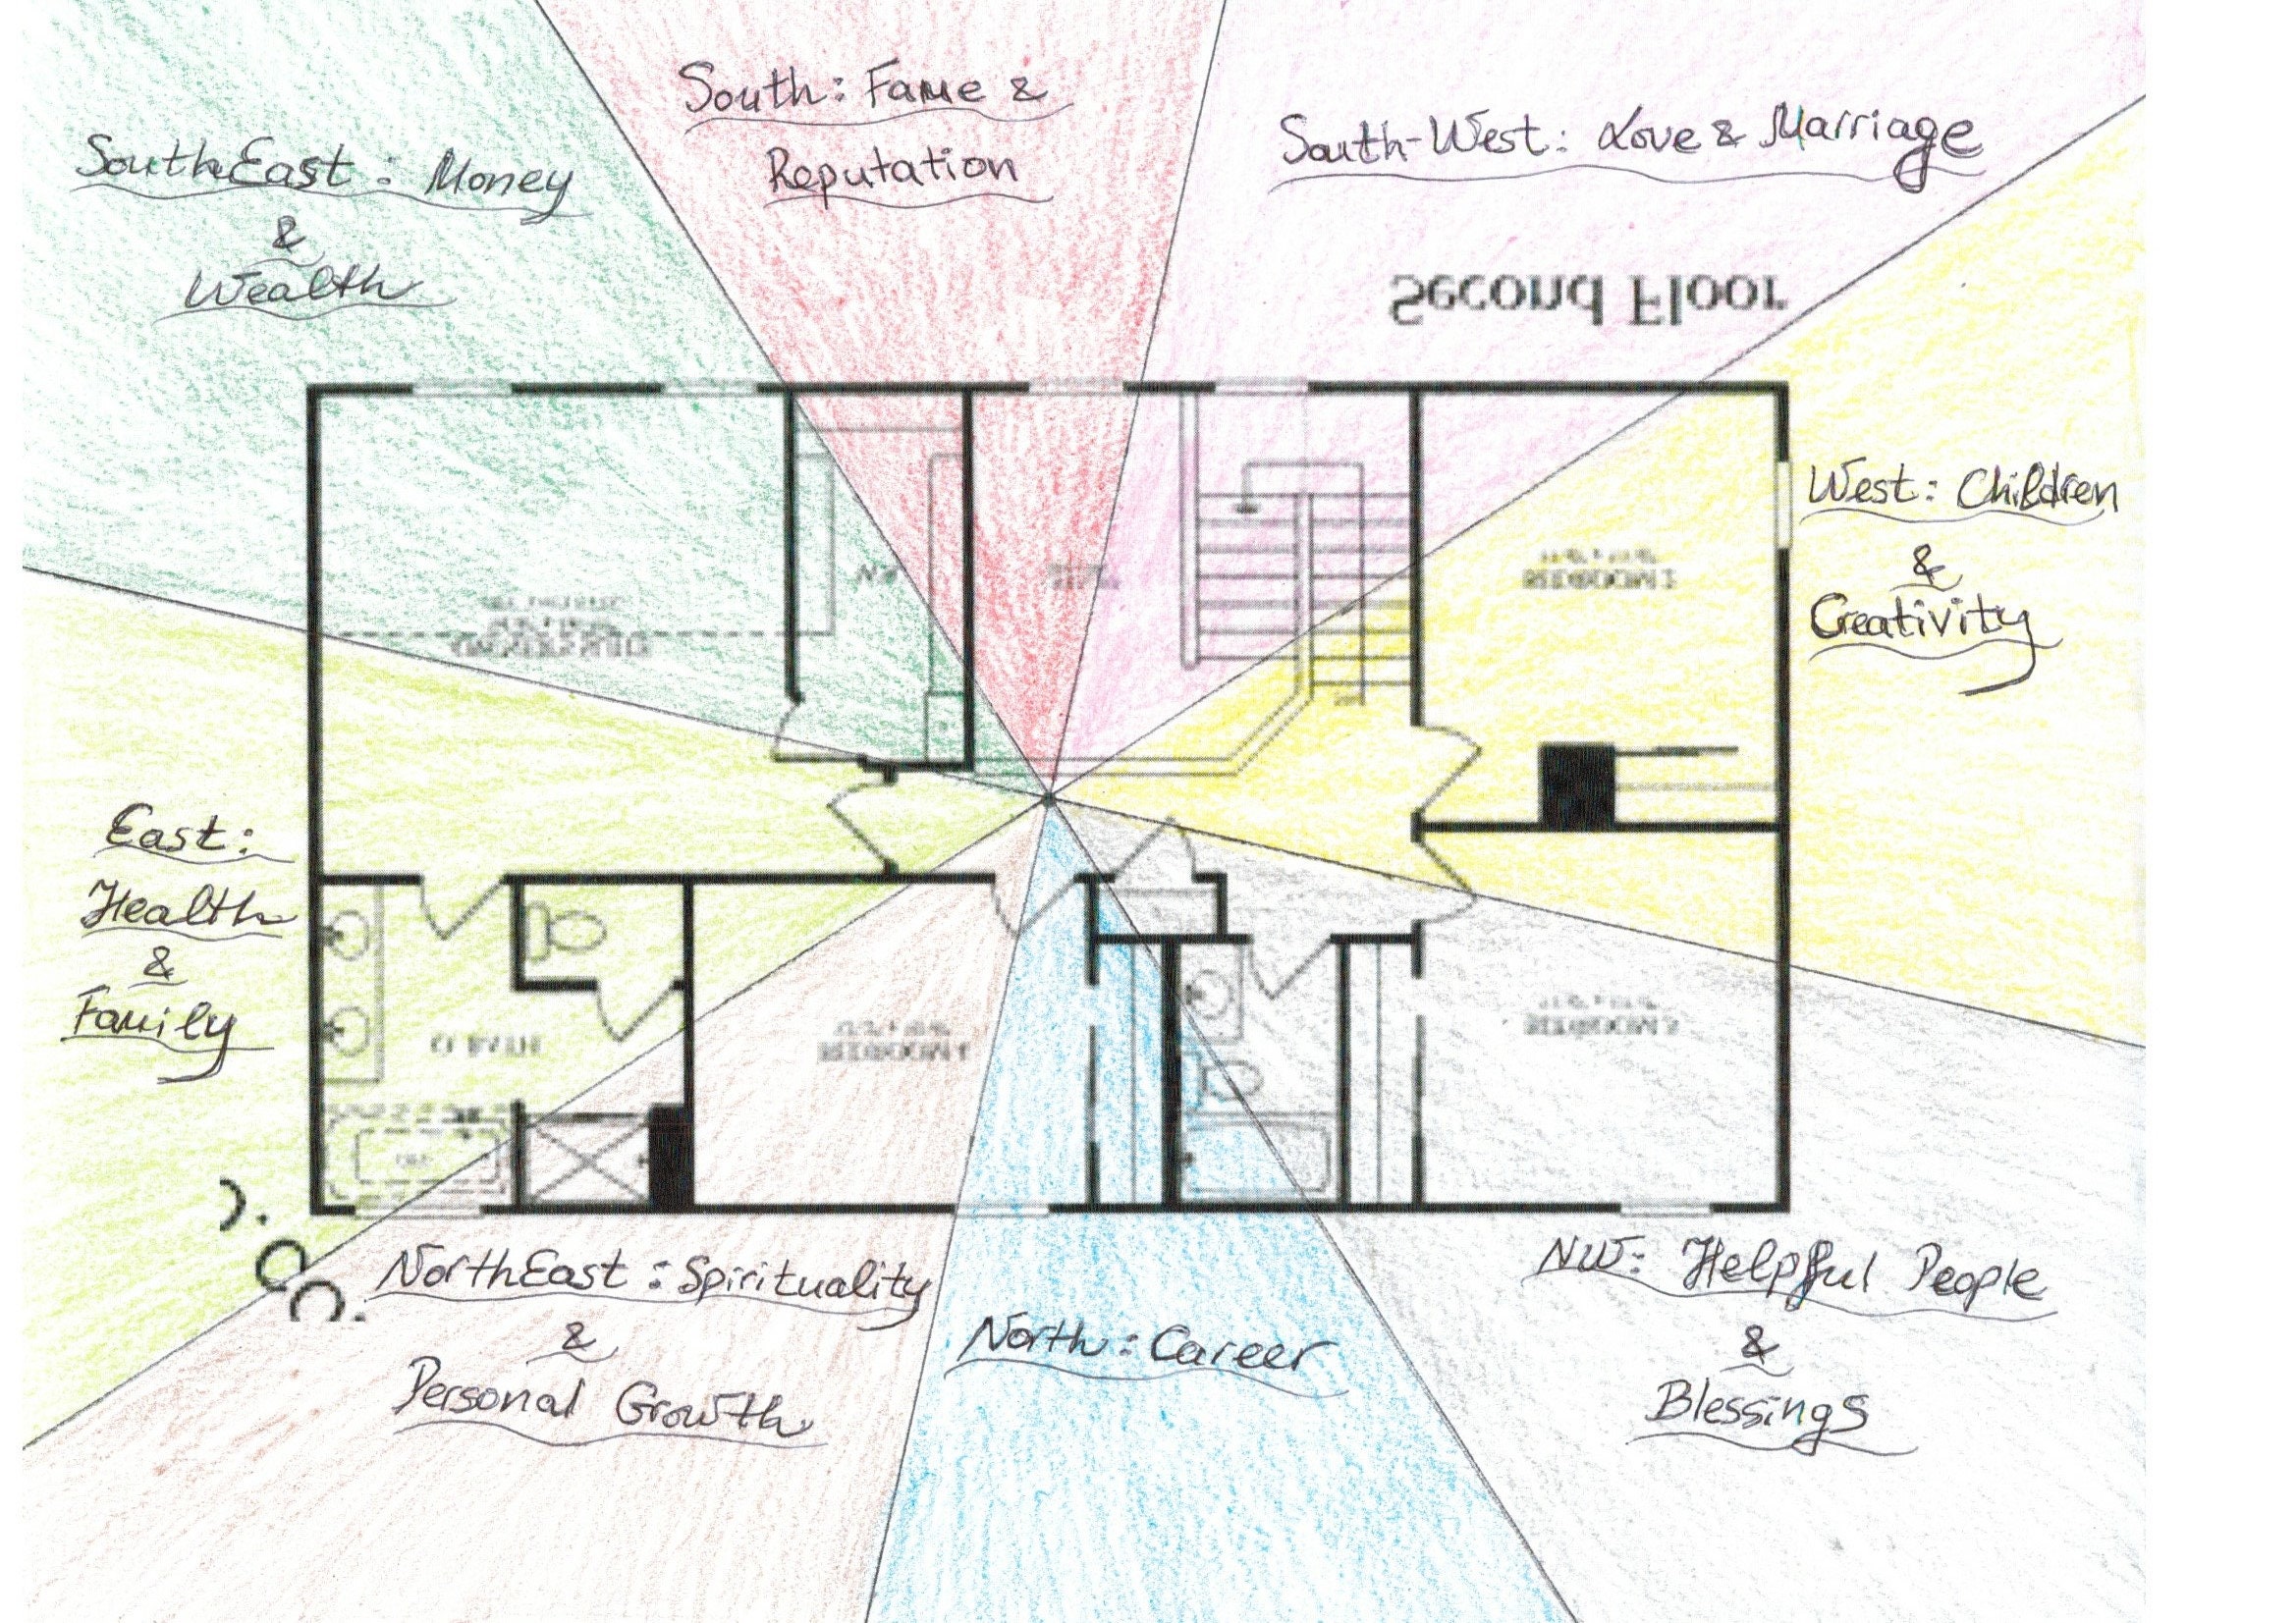 South: Fame &
Reputation
SouthEast: Money
&
Wealth
South-West: Love & Marriage
Second Floor
West: Children
&
Creativity
BEDROOM 2
OWNER'S SUITE
East:
Health
&
Family
O. BATH
BEDROOM 4
BEDROOM 3
NorthEast: Spirituality
&
Personal Growth
North: Career
NW: Helpful People
&
Blessings